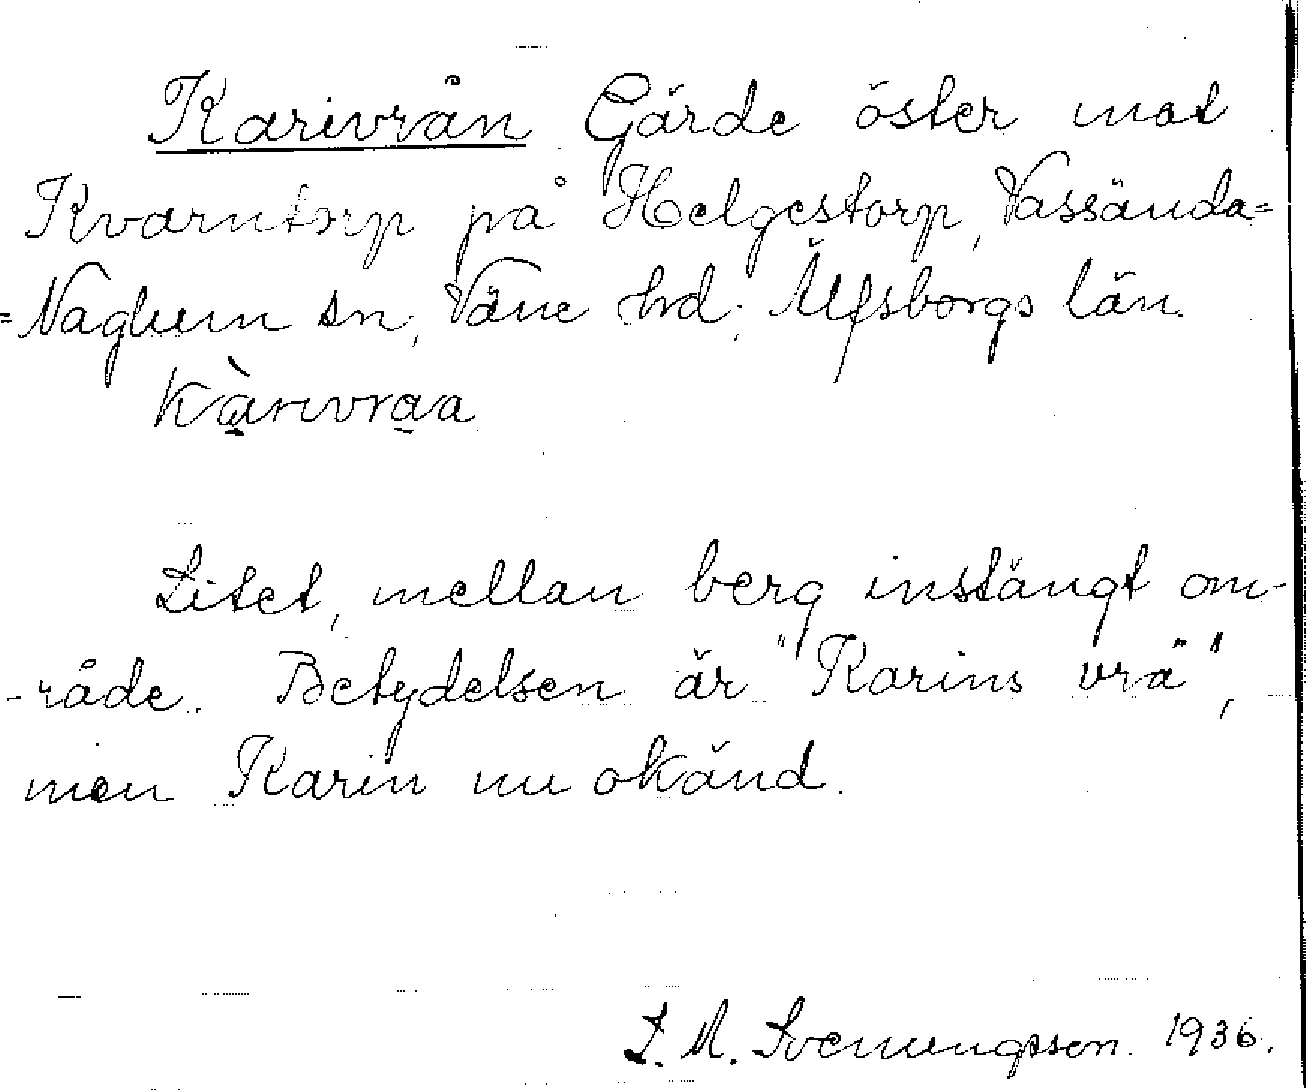 Karivrån Gärde öster mot
Kvarntorp på Helgestorp, Vassända=
=Naglum sn, Väne hd, Älfsborgs län.
Kàrivraa
Litet, mellan berg instängt om-
-råde. Betydelsen är "Karins vrå",
men Karin nu okänd.
L. M. Svenungsson. 1936.